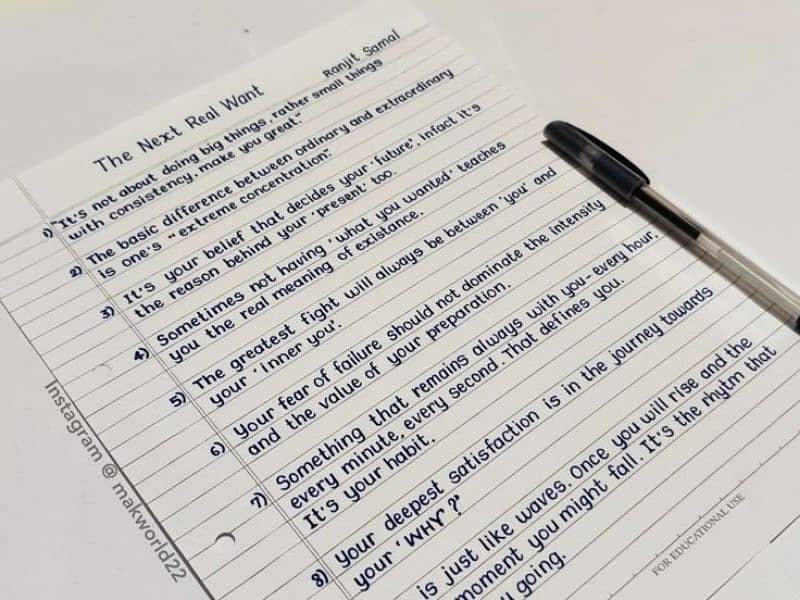 The Next Real Want
Ranjit Samal
1) "It's not about doing big things, rather small things
with consistency, make you great."
2) The basic difference between ordinary and extraordinary
is one's "extreme concentration".
3) It's your belief that decides your 'future', infact it's
the reason behind your 'present' too.
4) Sometimes not having 'what you wanted' teaches
you the real meaning of existance.
5) The greatest fight will always be between 'you' and
your 'inner you'.
6) Your fear of failure should not dominate the intensity
and the value of your preparation.
7) Something that remains always with you- every hour,
every minute, every second. That defines you.
It's your habit.
8) Your deepest satisfaction is in the journey towards
your 'WHY'?"
is just like waves. Once you will rise and the
moment you might fall. It's the rhytm that
going.
FOR EDUCATIONAL USE
Instagram @ makworld22